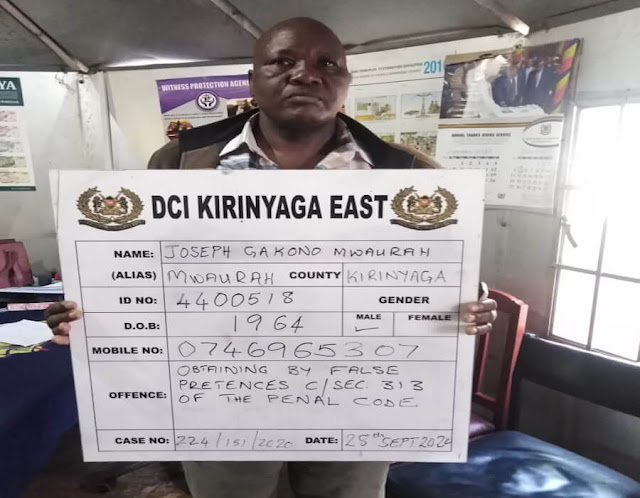 YA
WITNESS PROTECTION AGEN
201
DCI KIRINYAGA EAST
NAME: JOSEPH GAKONO MWAURAH
(ALIAS) MWAURAH COUNTY KIRINYAGA
ID NO: 4400518 GENDER
D.O.B: 1964 MALE ✓ FEMALE
MOBILE NO: 0746965307
OBTAINING BY FALSE
PRETENCES C/SEC. 313
OFFENCE: OF THE PENAL CODE
CASE NO: 224/151/2020 DATE: 25TH SEPT 2020